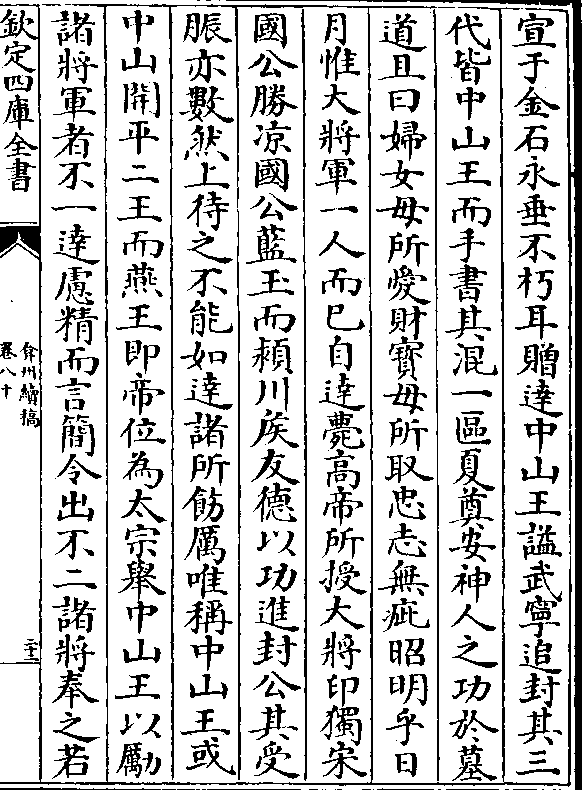 宣于金石永垂不朽耳贈達中山王諡武寧追封其三
代皆中山王而手書其混一區夏奠安神人之功於墓
道且曰婦女毋所愛財寶毋所取忠志無疵昭明乎日
月惟大將軍一人而已自達薨高帝所授大將印獨宋
國公勝凉國公藍玉而頴川侯友德以功進封公其受
脤亦數然上待之不能如達諸所飭厲唯稱中山王或
中山開平二王而燕王即帝位為太宗舉中山王以勵
諸將軍者不一達慮精而言簡令出不二諸將奉之若
欽定四庫全書
弇州續稿
卷八十
二十二